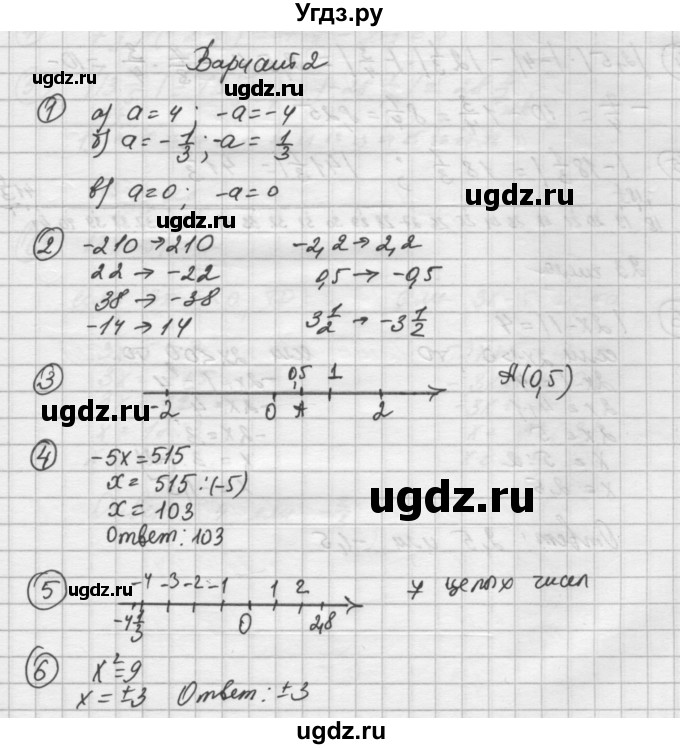 Угдз.ру
Вариант 2
① а) a = 4 ; -a = -4
б) a = - 1/3 ; -a = 1/3
в) a = 0 ; -a = 0
② -210 → 210 -2,2 → 2,2
22 → -22 0,5 → -0,5
38 → -38
-14 → 14 3 1/2 → -3 1/2
③ 0,5 1 A(0,5)
-2 0 A 2
④ -5x = 515
x = 515 : (-5)
x = 103
Ответ: 103
⑤ -4 -3 -2 -1 1 2 7 целых чисел
-4 1/3 0 2,8
⑥ x² = 9
x = ±3 Ответ: ±3
ugdz.ru
ugdz.ru
ugdz.ru
ugdz.ru
ugdz.ru
ugdz.ru
ugdz.ru
ugdz.ru
ugdz.ru
ugdz.ru
ugdz.ru